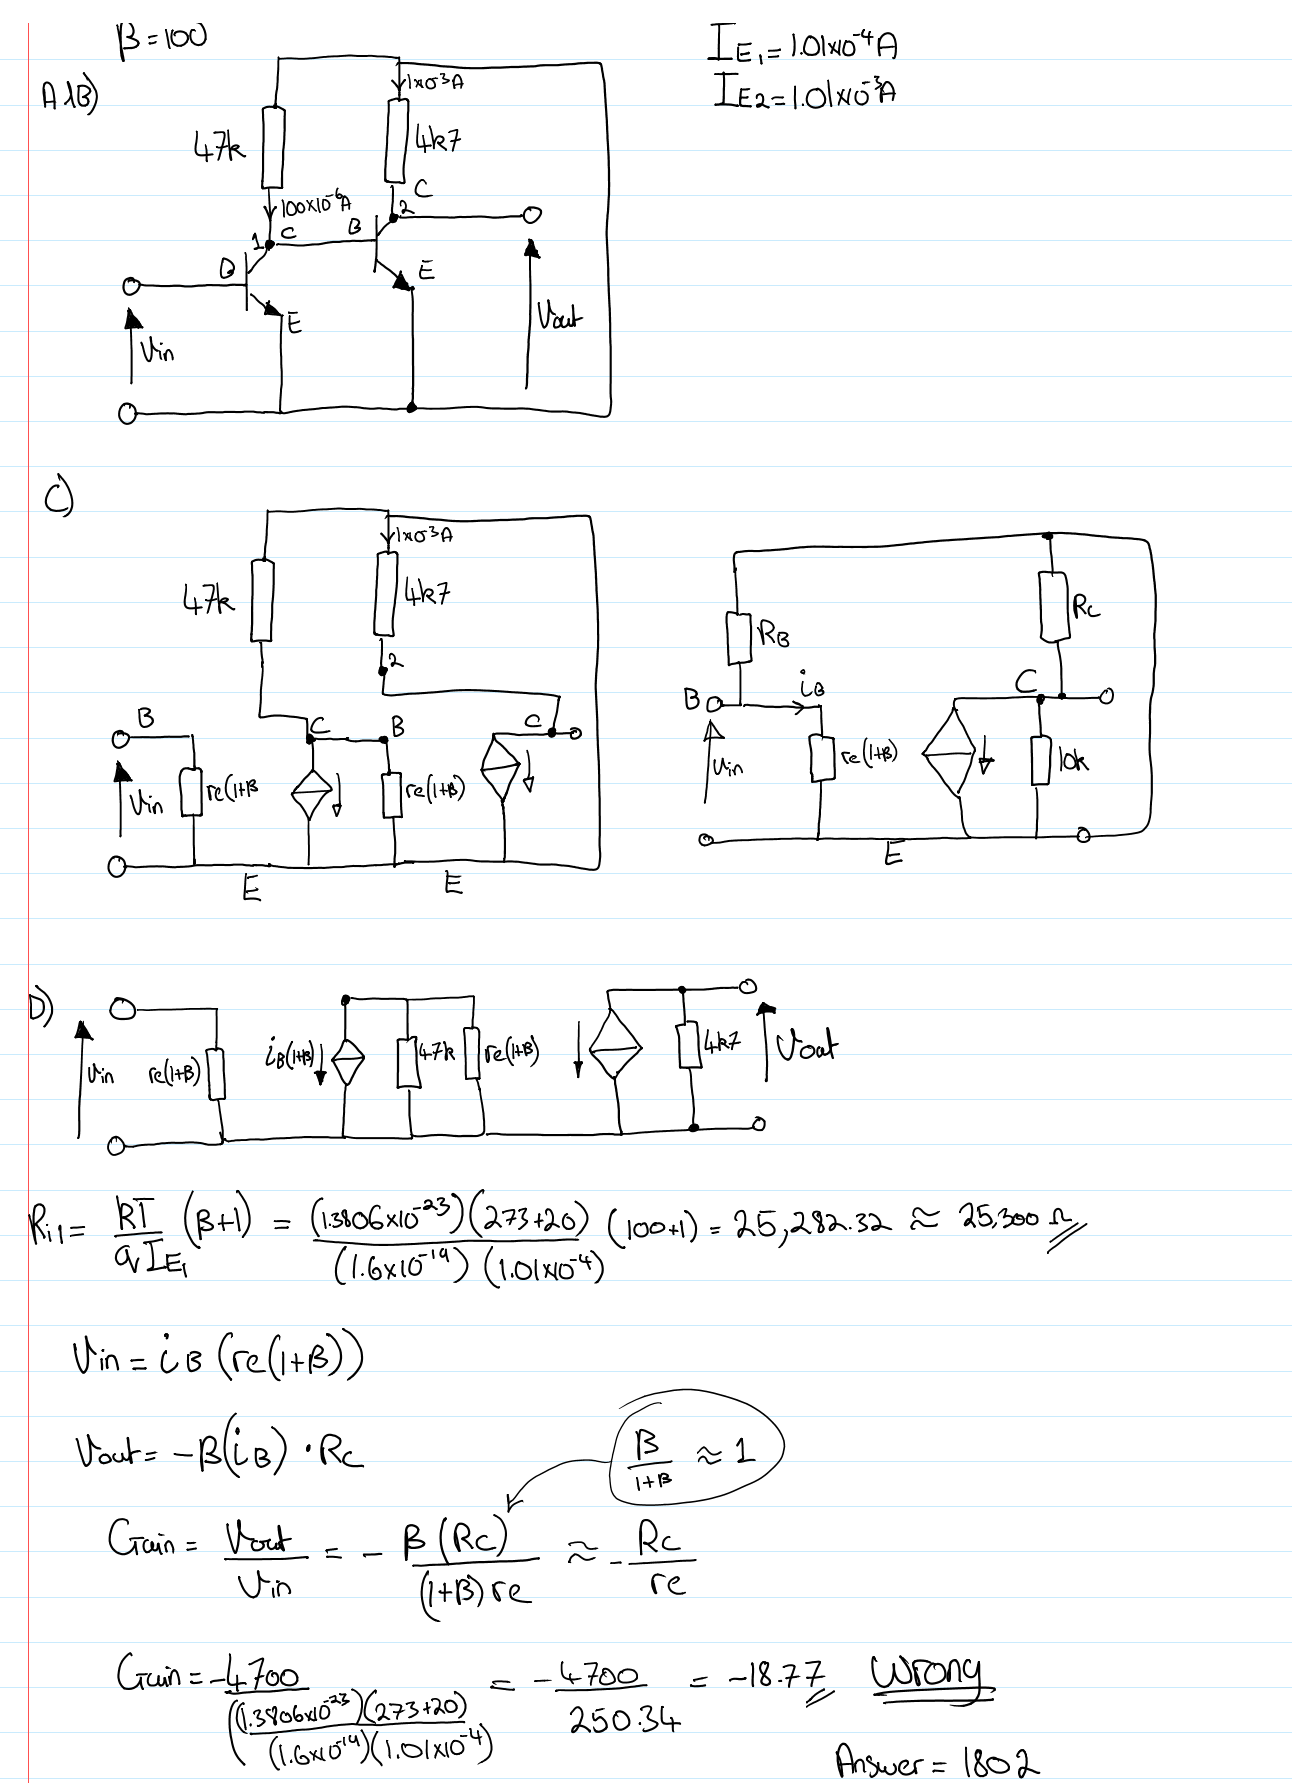 β=100
I_E1 = 1.01x10^-4 A
I_E2 = 1.01x10^-3 A
A&B)
1x10^-3 A
47k
4k7
C
100x10^-6 A
2
1 C
B
B
E
E
Vin
Vout
C)
1x10^-3 A
47k
4k7
2
B
C
B
C
Vin
re(1+β
re(1+β)
E
E
RB
RC
B
iB
C
Vin
re(1+β)
10k
E
D)
Vin
re(1+β)
iB(1+β)
47k
re(1+β)
4k7
Vout
Ri1 = kT/(qI_E1) (β+1) = (1.3806x10^-23)(273+20)/((1.6x10^-19)(1.01x10^-4)) (100+1) = 25,282.32 ≈ 25,300 Ω
Vin = iB (re(1+β))
Vout = -β(iB)·RC
β/(1+β) ≈ 1
Gain = Vout/Vin = - β(RC)/((1+β)re) ≈ - RC/re
Gain = -4700/((1.3806x10^-23)(273+20)/((1.6x10^-19)(1.01x10^-4)) = -4700/250.34 = -18.77 Wrong
Answer = 1802